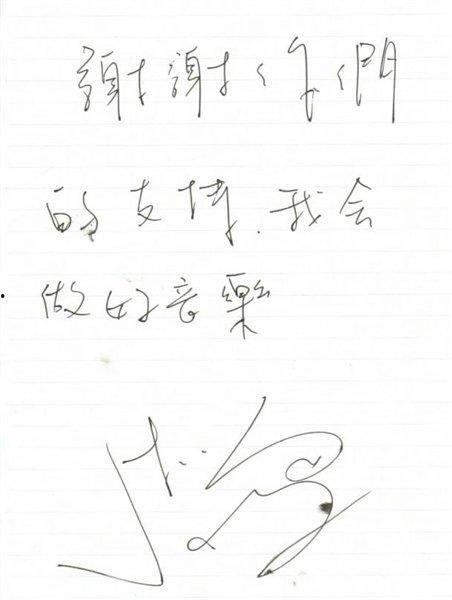 謝謝你們
的支持.我会
做好音樂